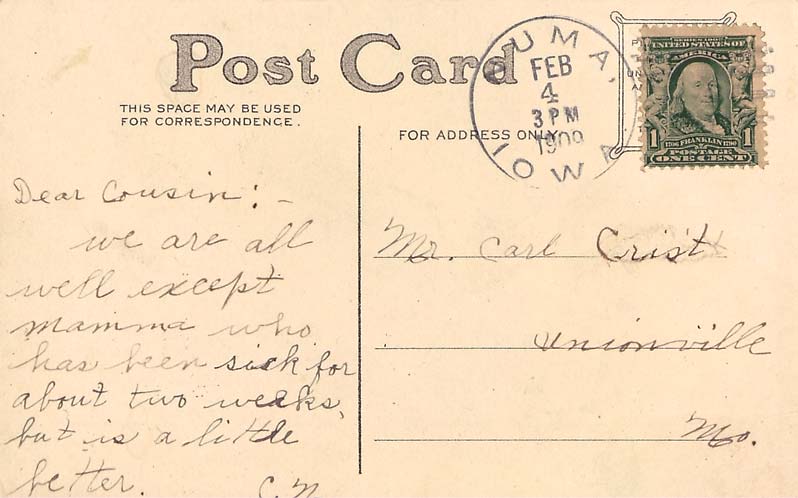 Post Card
THIS SPACE MAY BE USED
FOR CORRESPONDENCE.
FOR ADDRESS ONLY
UMA,
FEB
4
3 PM
1909
IOWA
UNITED STATES OF
AMERICA
1 1706 FRANKLIN 1790 1
POSTAGE
ONE CENT
Dear Cousin: -
we are all
well except
mamma who
has been sick for
about two weeks,
but is a little
better.
C. N
Mr. Carl Crist
Unionville
Mo.